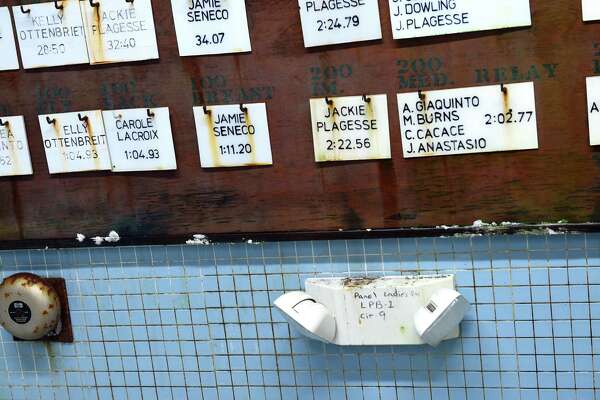 KELLY
OTTENBREIT
28.50
JACKIE
PLAGESSE
32.40
JAMIE
SENECO
34.07
PLAGESSE
2:24.79
J. DOWLING
J. PLAGESSE
100
FLY
100
BACK
100
BRYANT
200
IM.
200
MED. RELAY
1:04.93
ELLY
OTTENBREIT
1:04.93
CAROLE
LACROIX
1:04.93
JAMIE
SENECO
1:11.20
JACKIE
PLAGESSE
2:22.56
A. GIAQUINTO
M. BURNS
C. CACACE
J. ANASTASIO
2:02.77
Panel
LPB-1
Cir. 9